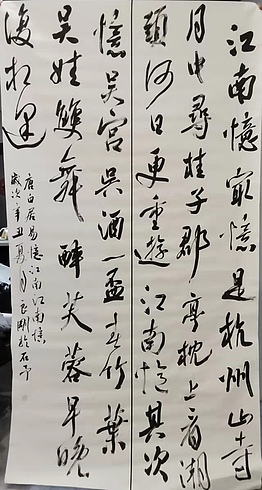 江南憶最憶是杭州山寺
月中尋桂子郡亭枕上看潮
頭何日更重遊江南憶其次
憶吳宮吳酒一盃春竹葉
吳娃雙舞醉芙蓉早晚
復相逢
唐白居易憶江南江南憶
歲次辛丑夏月良剛於石予